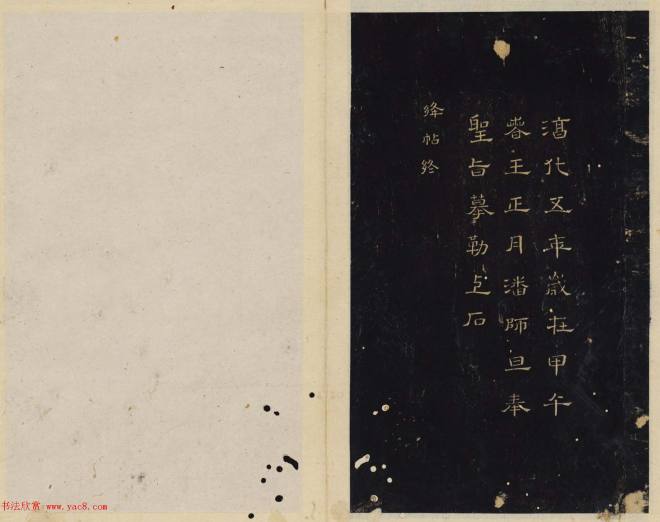 淳化五年歲在甲午
春王正月潘師旦奉
聖旨摹勒上石
絳帖終
书法欣赏·www.yac8.com